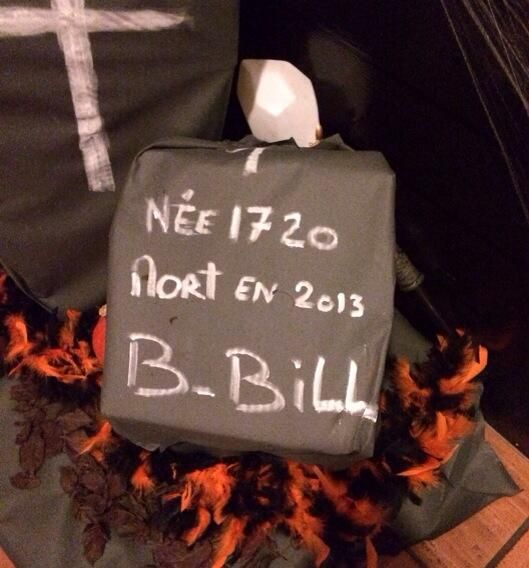 NÉE 1720
MORT EN 2013
B-BiLL